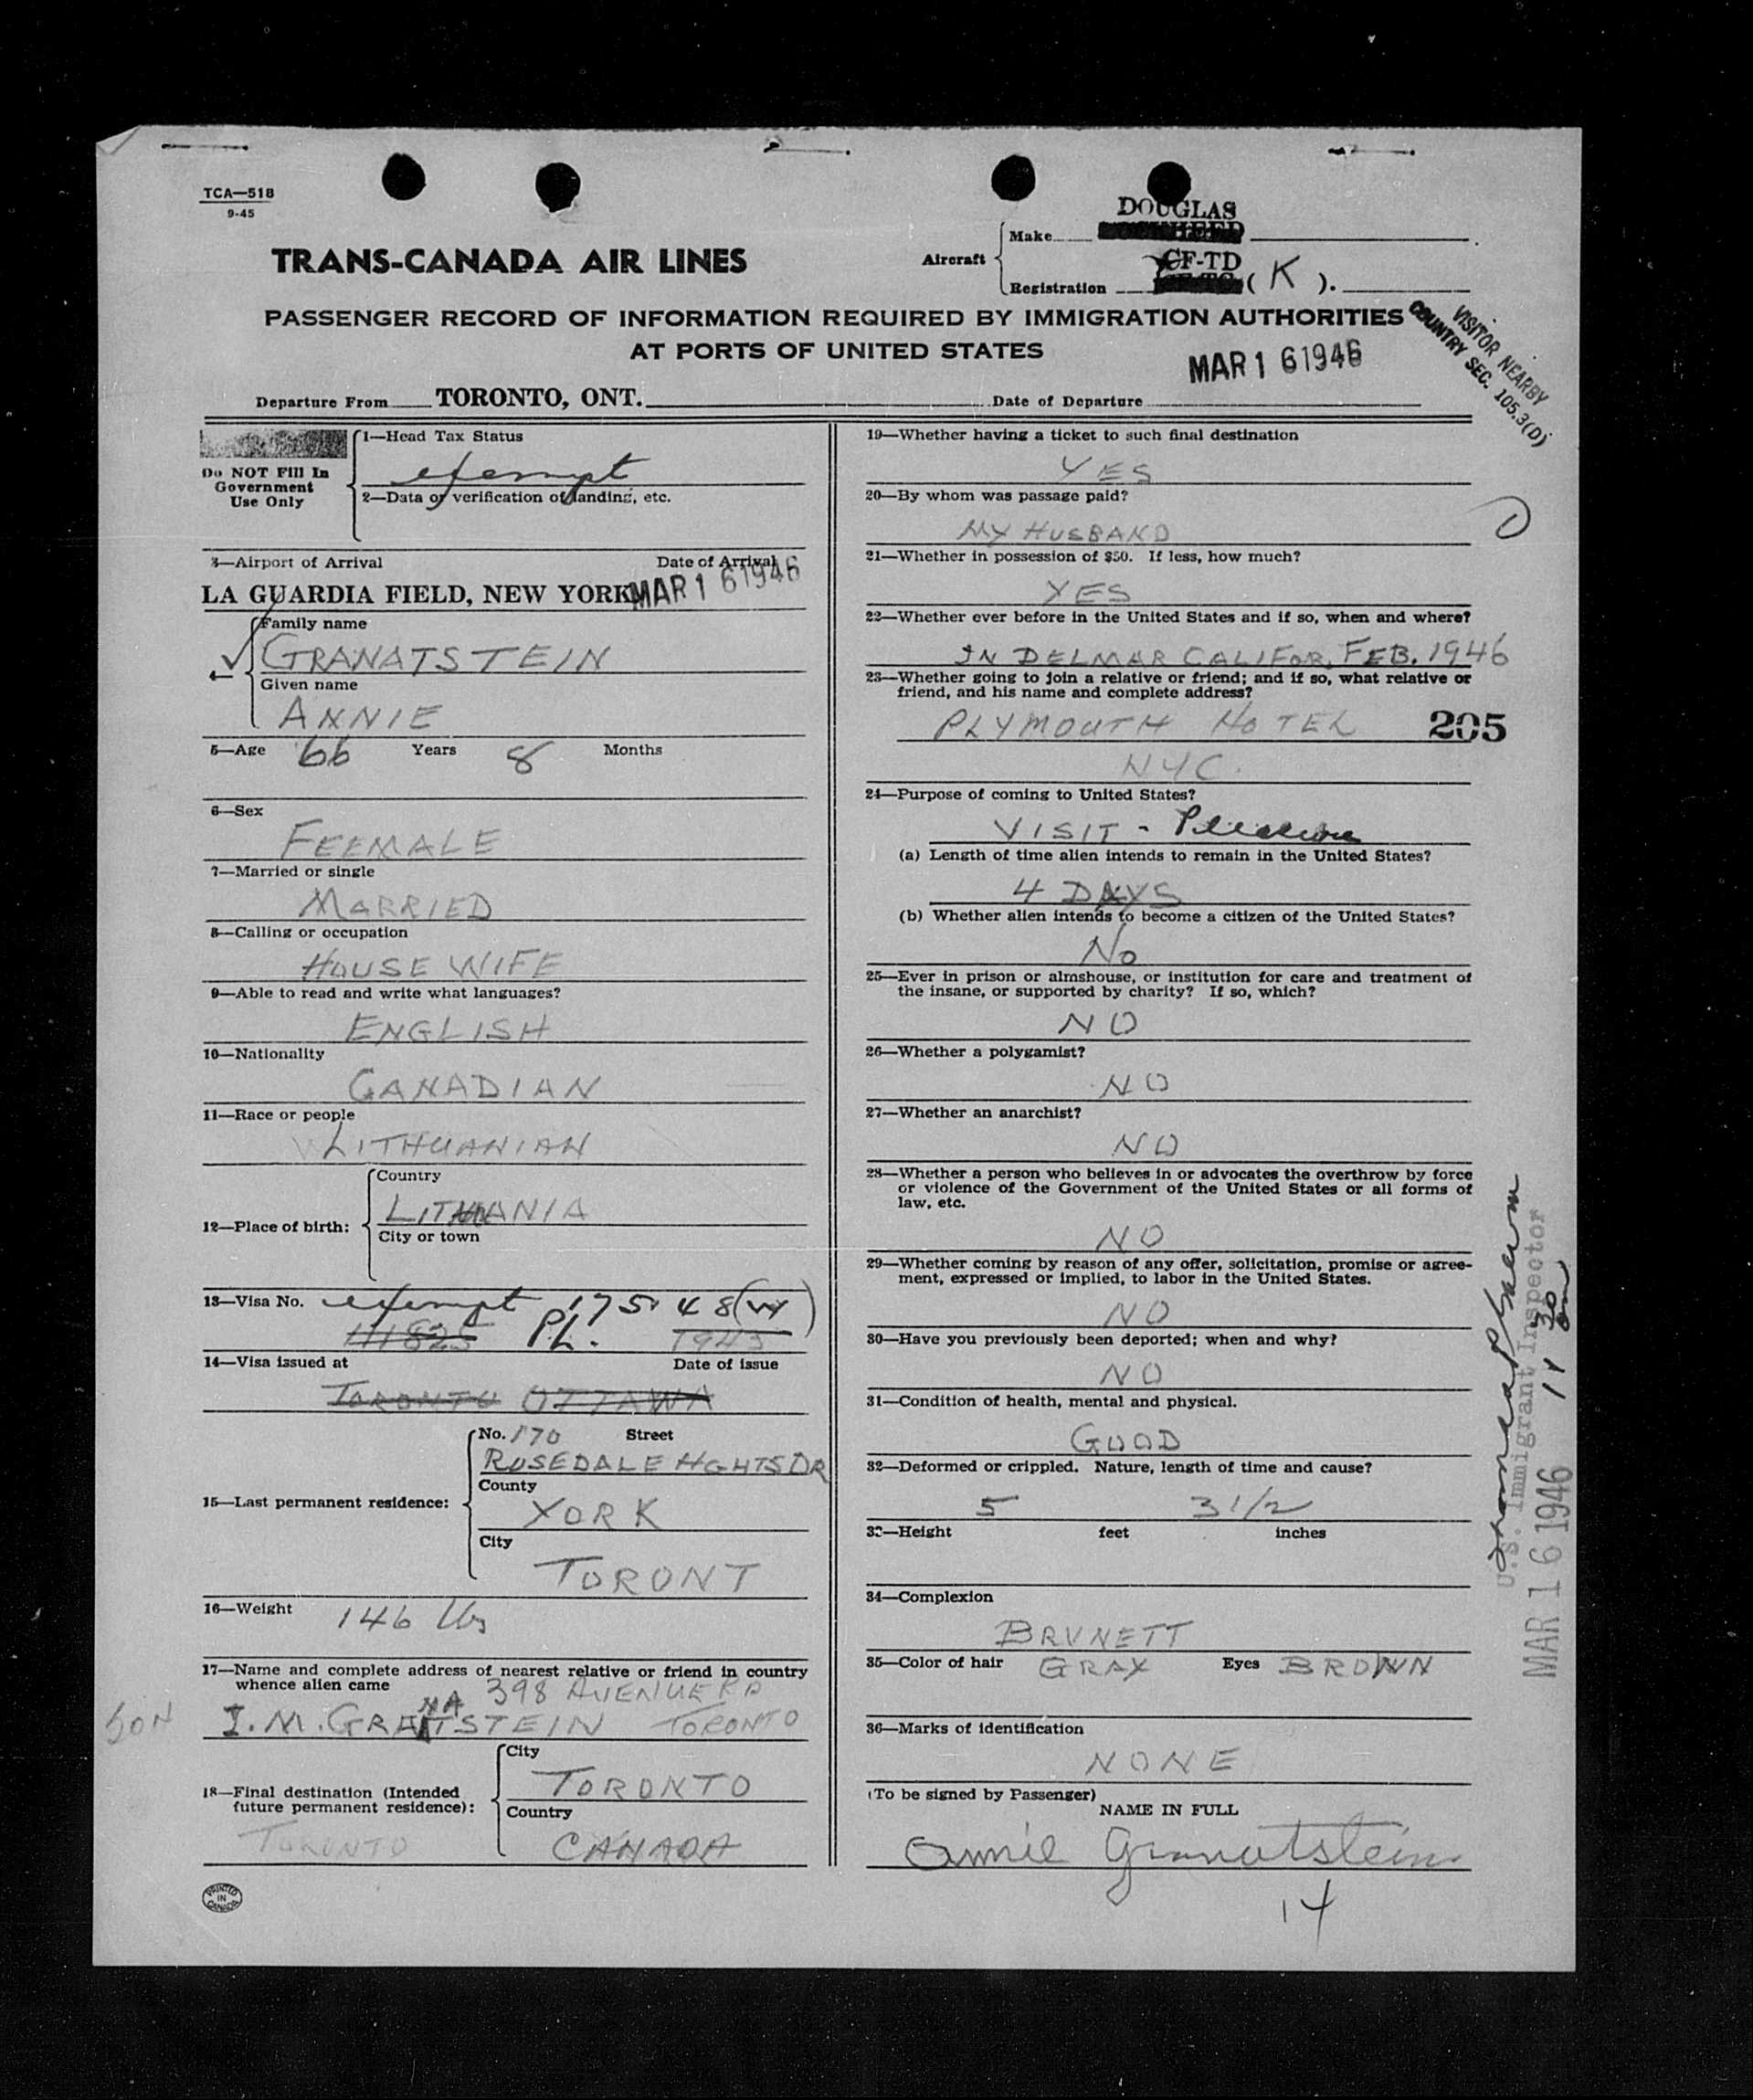 TCA—518
9-45
DOUGLAS
Make
TRANS-CANADA AIR LINES
Aircraft
CF-TD
Registration ( K ).
PASSENGER RECORD OF INFORMATION REQUIRED BY IMMIGRATION AUTHORITIES
AT PORTS OF UNITED STATES
VISITOR NEARBY
COUNTRY SEC. 105.3(D)
MAR 1 6 1946
Departure From TORONTO, ONT. Date of Departure
Do NOT Fill In
Government
Use Only
1—Head Tax Status
exempt
2—Data or verification of landing, etc.
3—Airport of Arrival Date of Arrival
LA GUARDIA FIELD, NEW YORK MAR 1 6 1946
4— Family name
GRANATSTEIN
Given name
ANNIE
5—Age 66 Years 8 Months
6—Sex
FEEMALE
7—Married or single
MARRIED
8—Calling or occupation
HOUSE WIFE
9—Able to read and write what languages?
ENGLISH
10—Nationality
CANADIAN
11—Race or people
LITHUANIAN
12—Place of birth:
Country
LITHUANIA
City or town
13—Visa No. exempt P.L. 17548
111825 1943
14—Visa issued at Date of issue
TORONTO OTTAWA
15—Last permanent residence:
No. 170 Street
ROSEDALE HGHTS DR
County
YORK
City
TORONT
16—Weight 146 lbs
17—Name and complete address of nearest relative or friend in country
whence alien came 398 AVENUE RD
SON I. M. GRANATSTEIN TORONTO
18—Final destination (Intended
future permanent residence):
TORONTO
City
TORONTO
Country
CANADA
PRINTED
IN
CANADA
19—Whether having a ticket to such final destination
YES
20—By whom was passage paid?
MY HUSBAND
21—Whether in possession of $50. If less, how much?
YES
22—Whether ever before in the United States and if so, when and where?
IN DELMAR CALIFOR, FEB. 1946
23—Whether going to join a relative or friend; and if so, what relative or
friend, and his name and complete address?
PLYMOUTH HOTEL 205
NYC.
24—Purpose of coming to United States?
VISIT - Pleasure
(a) Length of time alien intends to remain in the United States?
4 DAYS
(b) Whether alien intends to become a citizen of the United States?
No
25—Ever in prison or almshouse, or institution for care and treatment of
the insane, or supported by charity? If so, which?
NO
26—Whether a polygamist?
NO
27—Whether an anarchist?
NO
28—Whether a person who believes in or advocates the overthrow by force
or violence of the Government of the United States or all forms of
law, etc.
NO
29—Whether coming by reason of any offer, solicitation, promise or agree-
ment, expressed or implied, to labor in the United States.
NO
30—Have you previously been deported; when and why?
NO
31—Condition of health, mental and physical.
GOOD
32—Deformed or crippled. Nature, length of time and cause?
5 3 1/2
33—Height feet inches
34—Complexion
BRUNETT
35—Color of hair GRAY Eyes BROWN
36—Marks of identification
NONE
(To be signed by Passenger)
NAME IN FULL
Annie Granatstein
14
U.S. Immigrant Inspector
MAR 1 6 1946
11 30 am